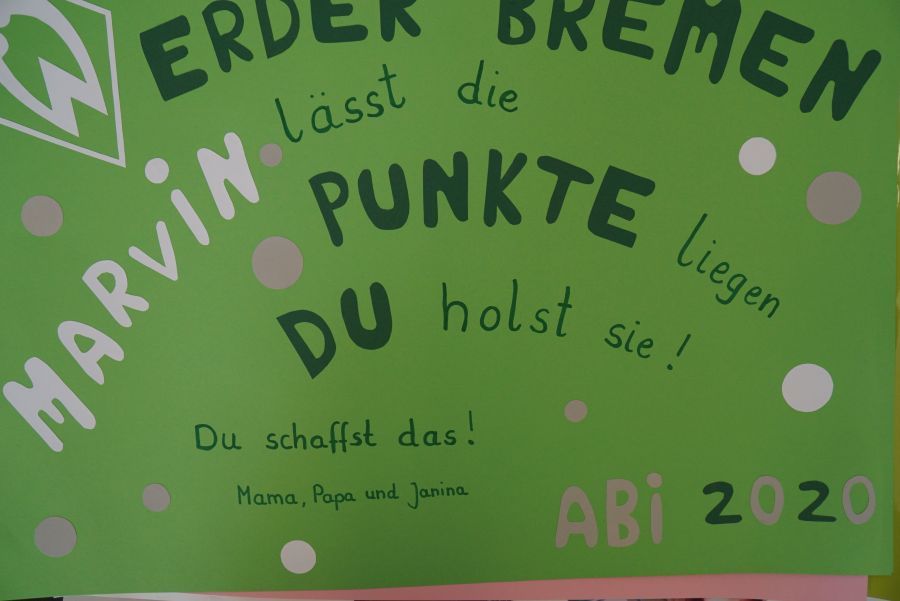 W ERDER BREMEN
lässt die
PUNKTE liegen
MARVIN
DU holst sie!
Du schaffst das!
Mama, Papa und Janina
ABi 2020